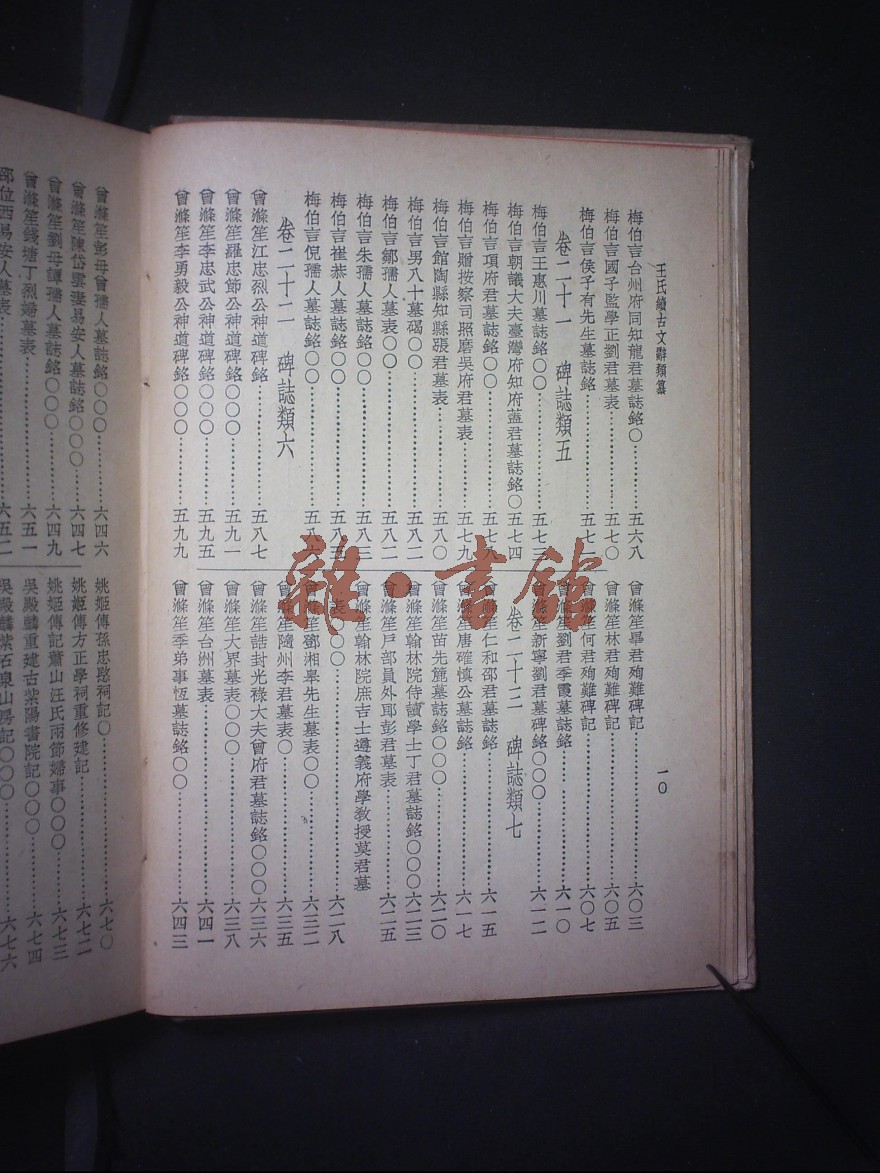 王氏續古文辭類纂
一〇
梅伯言台州府同知龍君墓誌銘〇…………五六八
梅伯言國子監學正劉君墓表…………五七〇
梅伯言侯子有先生墓誌銘…………五七二
卷二十一 碑誌類五
梅伯言王惠川墓誌銘〇〇…………五七三
梅伯言朝議大夫臺灣府知府蓋君墓誌銘〇五七四
梅伯言項府君墓誌銘〇〇…………五七八
梅伯言贈按察司照磨吳府君墓表…………五七九
梅伯言館陶縣知縣張君墓表…………五八〇
梅伯言男八十墓碣〇〇…………五八二
梅伯言鄒孺人墓表〇〇…………五八二
梅伯言朱孺人墓誌銘〇〇…………五八三
梅伯言崔恭人墓誌銘〇〇…………五八五
梅伯言倪孺人墓誌銘〇〇…………五八六
卷二十二 碑誌類六
曾滌笙江忠烈公神道碑銘…………五八七
曾滌笙羅忠節公神道碑銘〇〇〇…………五九一
曾滌笙李忠武公神道碑銘〇〇〇…………五九五
曾滌笙李勇毅公神道碑銘〇〇〇…………五九九
曾滌笙畢君殉難碑記…………六〇三
曾滌笙林君殉難碑記…………六〇五
曾滌笙何君殉難碑記…………六〇七
曾滌笙劉君季霞墓誌銘…………六一〇
曾滌笙新寧劉君墓碑銘〇〇〇…………六一二
卷二十三 碑誌類七
曾滌笙仁和邵君墓誌銘…………六一五
曾滌笙唐確慎公墓誌銘…………六一七
曾滌笙苗先簏墓誌銘〇〇〇…………六二〇
曾滌笙翰林院侍讀學士丁君墓誌銘〇〇〇六二三
曾滌笙戶部員外郎彭君墓表…………六二五
曾滌笙翰林院庶吉士遵義府學教授莫君墓
表〇〇〇…………六二八
曾滌笙鄧湘皋先生墓表〇〇…………六三二
曾滌笙隨州李君墓表〇…………六三五
曾滌笙誥封光祿大夫曾府君墓誌銘〇〇〇六三六
曾滌笙大界墓表〇〇〇…………六三八
曾滌笙台洲墓表…………六四一
曾滌笙季弟事恆墓誌銘〇〇…………六四三
曾滌笙彭母曾孺人墓誌銘〇〇〇…………六四六
曾滌笙陳岱雲妻易安人墓誌銘〇〇〇…………六四七
曾滌笙劉母譚孺人墓誌銘〇〇〇…………六四九
曾滌笙錢塘丁烈婦墓表…………六五一
邵位西易安人墓表…………六五二
姚姬傳孫忠愍祠記〇…………六七〇
姚姬傳方正學祠重修建記…………六七二
姚姬傳記蕭山汪氏兩節婦事〇〇〇…………六七三
吳殿麟重建古紫陽書院記〇〇〇…………六七四
吳殿麟紫石泉山房記〇〇〇…………六七六
雜·書館